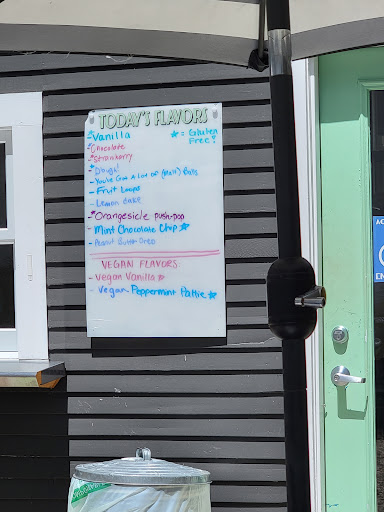 TODAY'S FLAVORS
Vanilla ★ = Gluten
Chocolate Free?
Strawberry
Dough!
- You've Got A Lot of (Malt) Balls
- Fruit Loops
- Lemon Cake
Orangesicle push-pop
- Mint Chocolate Chip ★
- Peanut Butter Oreo
VEGAN FLAVORS
- Vegan Vanilla ★
- Vegan Peppermint Pattie ★